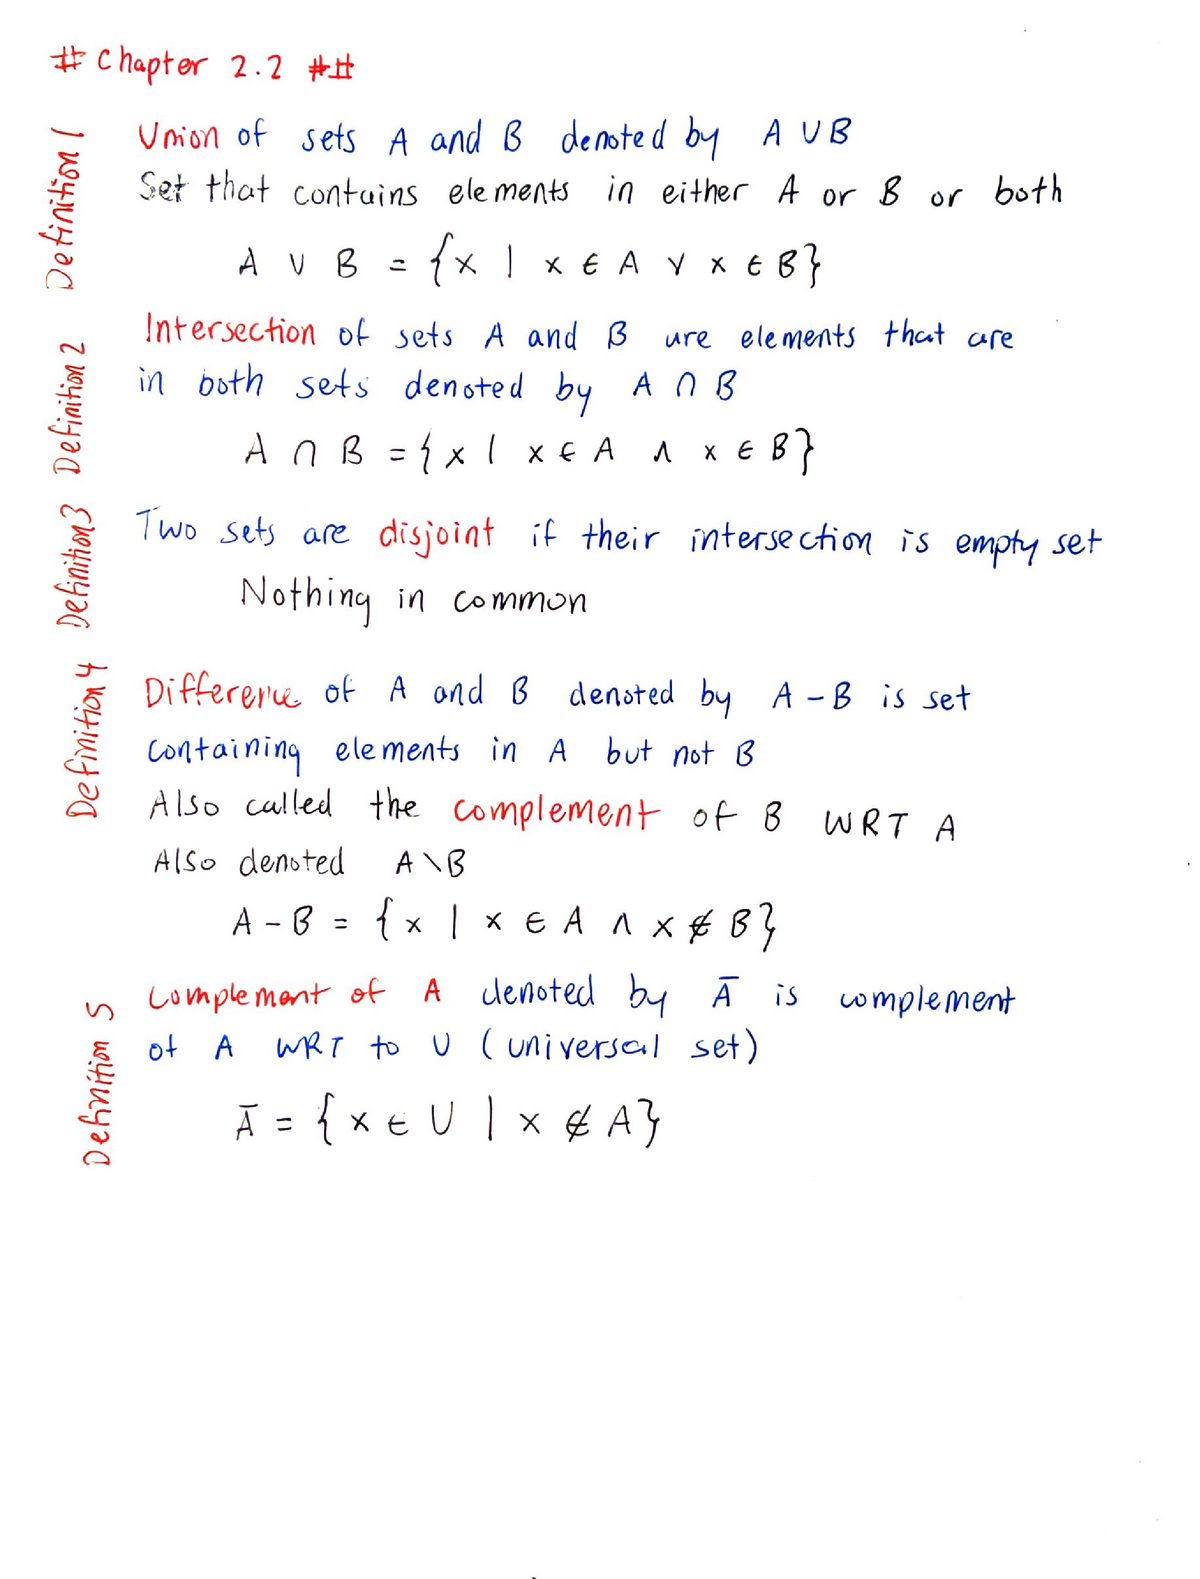 # Chapter 2.2 ##
Definition 1
Union of sets A and B denoted by A ∪ B
Set that contains elements in either A or B or both
A ∪ B = {x | x ∈ A ∨ x ∈ B}
Definition 2
Intersection of sets A and B are elements that are
in both sets denoted by A ∩ B
A ∩ B = {x | x ∈ A ∧ x ∈ B}
Definition 3
Two sets are disjoint if their intersection is empty set
Nothing in common
Definition 4
Difference of A and B denoted by A - B is set
containing elements in A but not B
Also called the complement of B WRT A
Also denoted A \ B
A - B = {x | x ∈ A ∧ x ∉ B}
Definition 5
Complement of A denoted by Ā is complement
of A WRT to U (universal set)
Ā = {x ∈ U | x ∉ A}